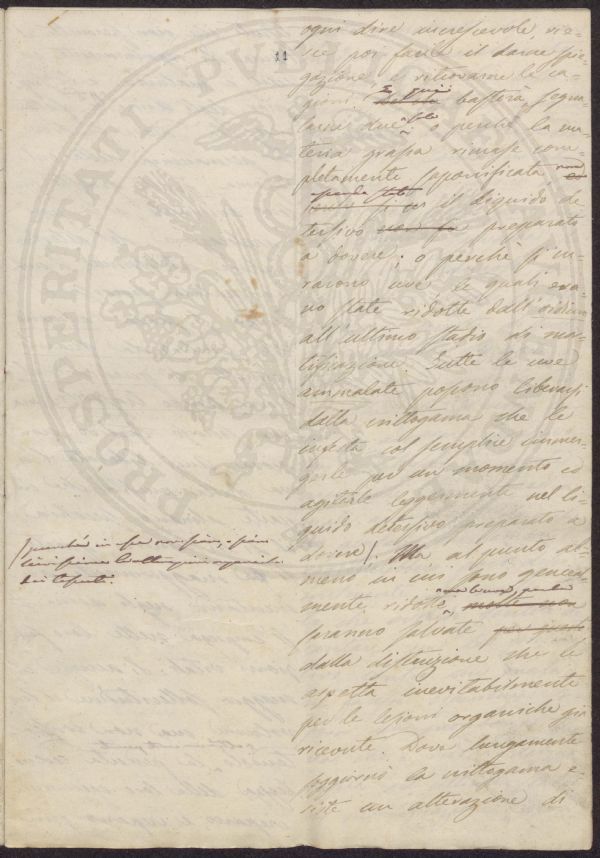 11
ogni dire increscevole, rie-
sce poi facile il darne spie-
gazione e ritrovarne le ca-
gioni. E qui basterà segna-
larne due sole o perchè la ma-
teria grassa rimase com-
pletamente saponificata non
essendo stato il liquido de-
tersivo preparato
a dovere; o perchè si cu-
rarono uve le quali era-
no state ridotte dall'oidium
all'ultimo stadio di mor-
tificazione. Tutte le uve
ammalate possono liberarsi
dalla crittogama che le
infesta col semplice immer-
gerle per un momento ed
agitarle leggermente nel li-
quido detersivo preparato a
dovere/. Ma al punto al-
meno in cui sono general-
mente ridotte,
saranno salvate
dalla distruzione che le
aspetta inevitabilmente
per le lesioni organiche già
ricevute. Dove lungamente
soggiornò la crittogama e-
siste un alterazione di
/purchè in se non sieno
lesioni organiche
dei tessuti.
PROSPERITATI PVBLI